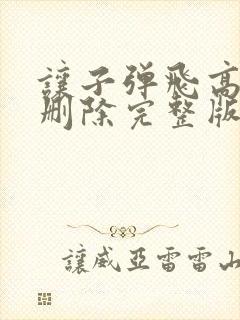 讓子弹飛高
删除完整版
讓威亞雷雷山